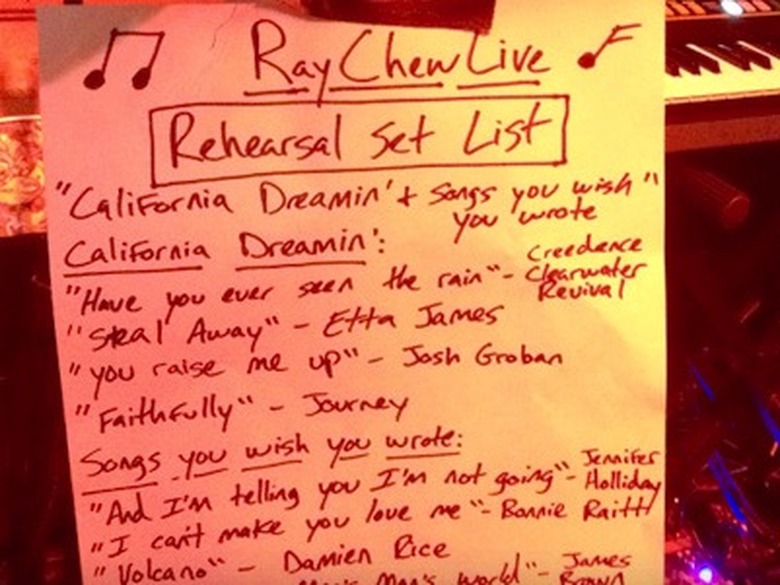 Ray Chew Live
Rehearsal Set List
"California Dreamin' + Songs you wish"
you wrote
California Dreamin':
"Have you ever seen the rain" - Creedence Clearwater Revival
"Steal Away" - Etta James
"you raise me up" - Josh Groban
"Faithfully" - Journey
Songs you wish you wrote:
"And I'm telling you I'm not going" - Jennifer Holliday
"I can't make you love me" - Bonnie Raitt
"Volcano" - Damien Rice
Man's world" - James Brown